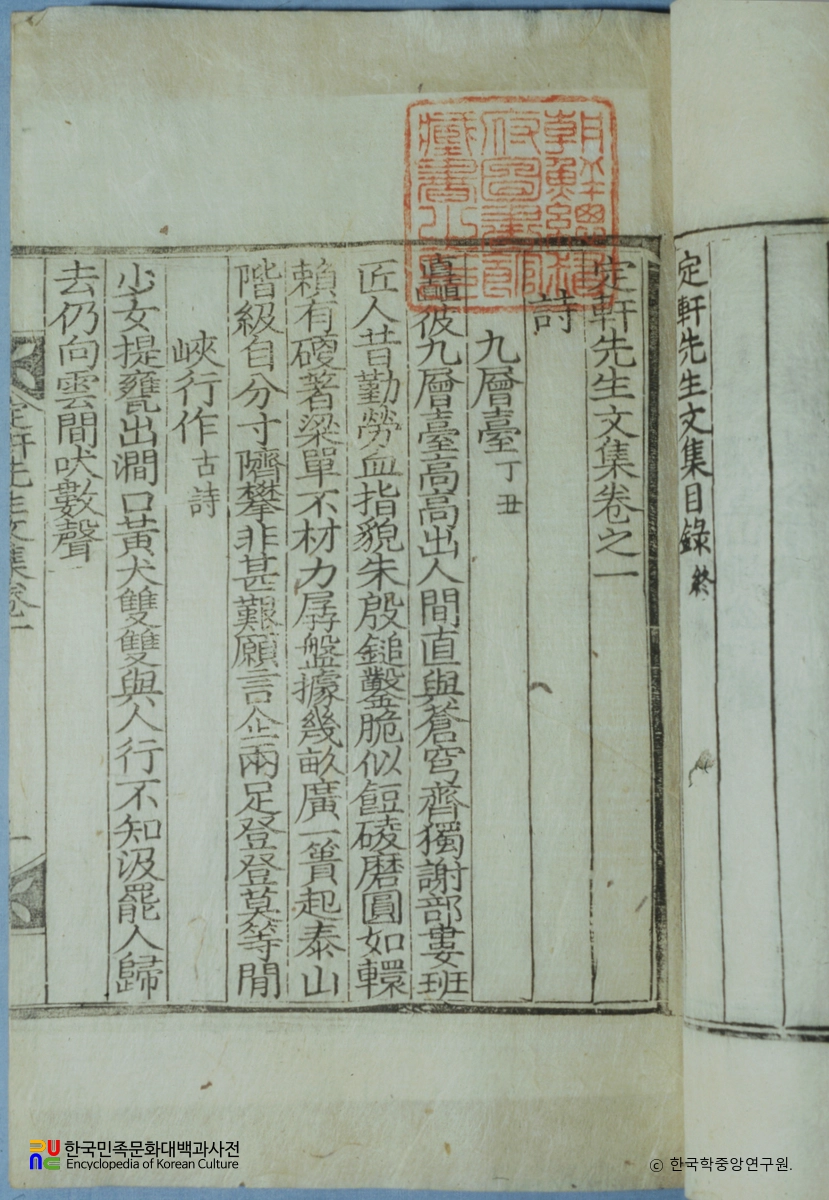 定軒先生文集目錄 終
朝鮮總督府圖書館藏書之印
定軒先生文集卷之一
詩
九層臺 丁丑
矗彼九層臺高高出人間直與蒼穹齊獨謝部婁班
匠人昔勤勞血指貌朱殷鎚鑿脆似餖碐磨圓如轘
賴有著梁單不材力孱盤據幾畝廣一簣起泰山
階級自分寸隮攀非甚艱願言企兩足登登莫等閒
峽行作 古詩
少女提甕出澗口黃犬雙雙與人行不知汲罷人歸
去仍向雲間吠數聲
定軒先生文集卷一
一
한국민족문화대백과사전
Encyclopedia of Korean Culture
ⓒ 한국학중앙연구원.